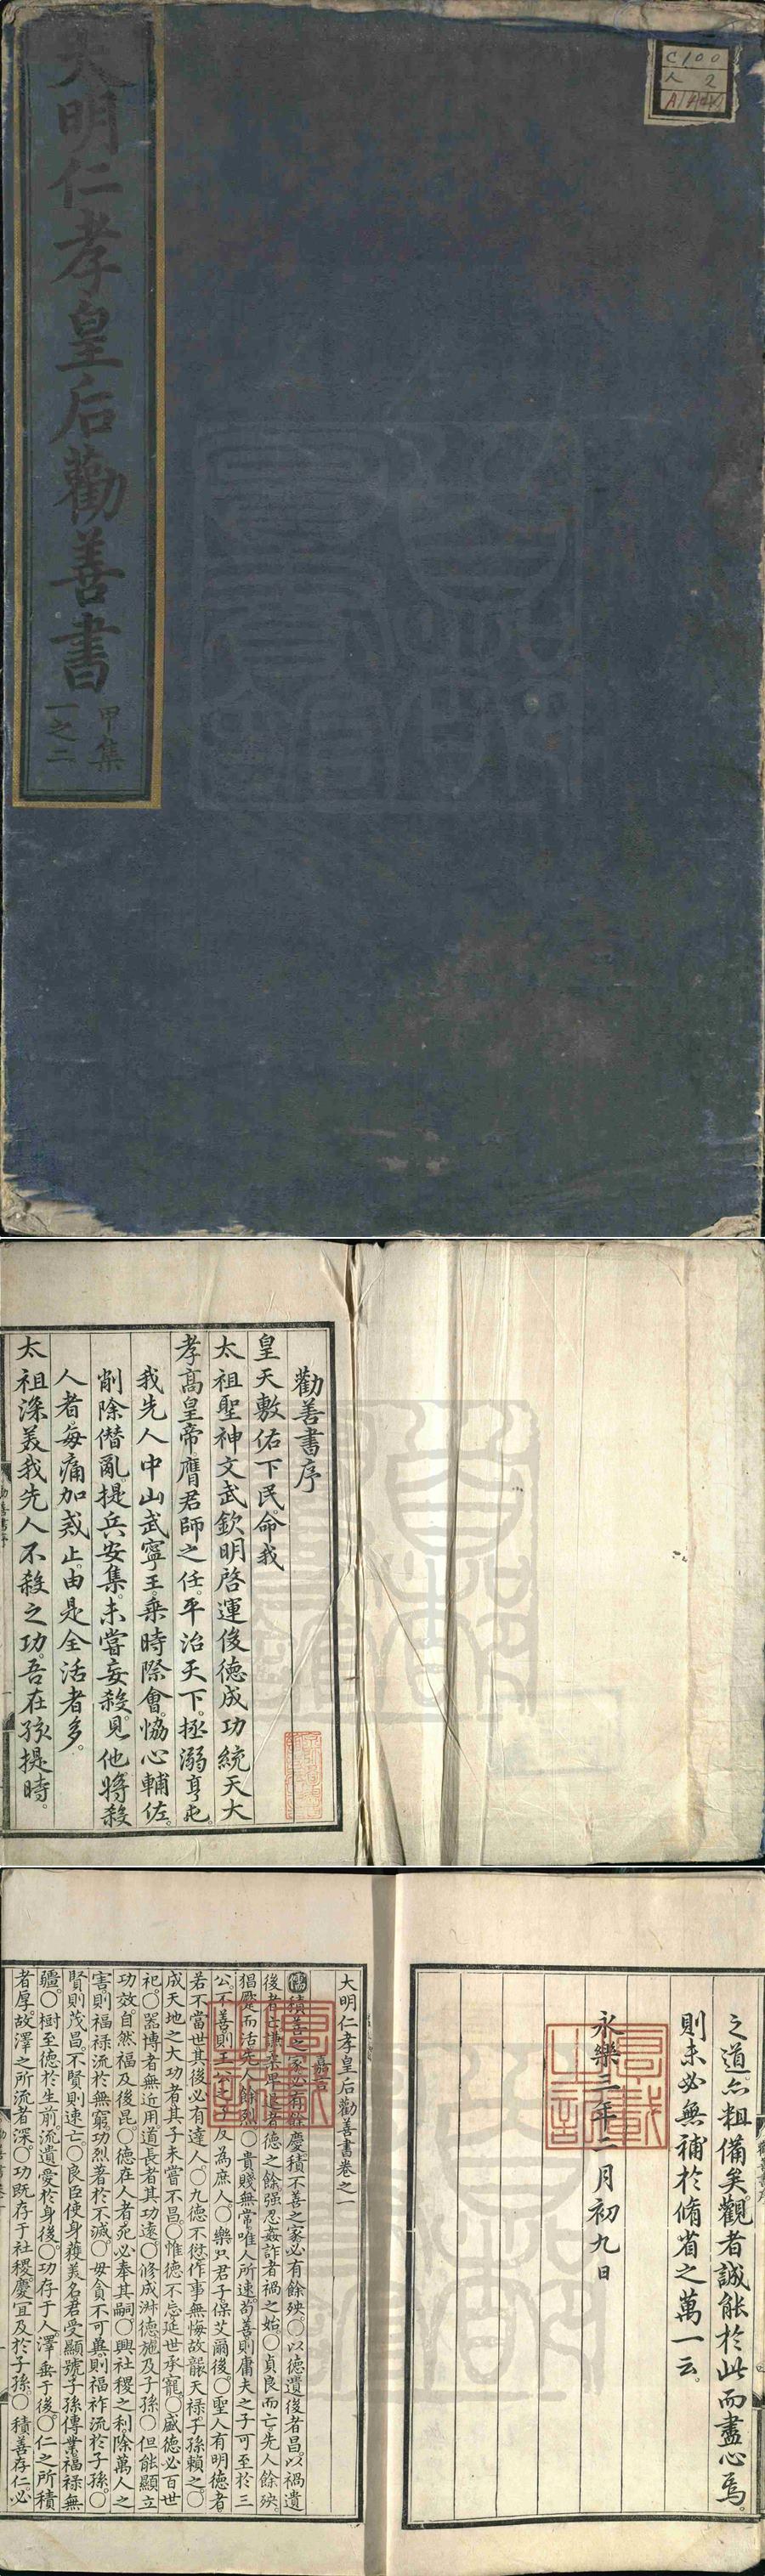 大明仁孝皇后勸善書
甲集
一之二
C100
勸善書序
皇天敷佑下民。命我
太祖聖神文武欽明啓運俊德成功統天大
孝高皇帝膺君師之任。平治天下。拯溺亨屯。
我先人中山武寧王。乘時際會。恊心輔佐。
削除僭亂。提兵安集。未嘗妄殺。見他將殺
人者。每痛加戒止。由是全活者多。
太祖深美我先人不殺之功。吾在孩提時。
之道。亦粗備矣。觀者誠能於此而盡心焉。
則未必無補於脩省之萬一云。
永樂三年二月初九日
大明仁孝皇后勸善書卷之一
嘉言
儒積善之家必有餘慶積不善之家必有餘殃。○以德遺後者昌。以禍遺
後者亡。謙柔卑退者德之餘。强忍姦詐者禍之始。○貞良而亡。先人餘殃。
猖蹷而活。先人餘烈。○貴賤無常。唯人所速。苟善則庸夫之子可至於三
公。不善則王公之子反為庶人。○樂只君子。保艾爾後。○聖人有明德者
若不當世。其後必有達人。○九德不愆。作事無悔。故襲天禄。子孫賴之。○
成天地之大功者。其子未嘗不昌。○惟德不忘。延世承寵。○盛德必百世
祀。○器博者無近用。道長者其功遠。○修成淋德。施及子孫。○但能顯立
功效。自然福及後昆。○德在人者死必奉其嗣。○興社稷之利。除萬人之
害。則福禄流於無窮。功烈著於不滅。○毋貪不可冀。則福祚流於子孫。○
賢則茂昌。不賢則速亡。○良臣使身蕕美名。君受顯號。子孫傳業。福禄無
疆。○樹至德於生前。流遺愛於身後。○功存于人。澤垂于後。○仁之所積
者厚。故澤之所流者深。○功既存于社稷。慶宜及於子孫。○積善存仁。必